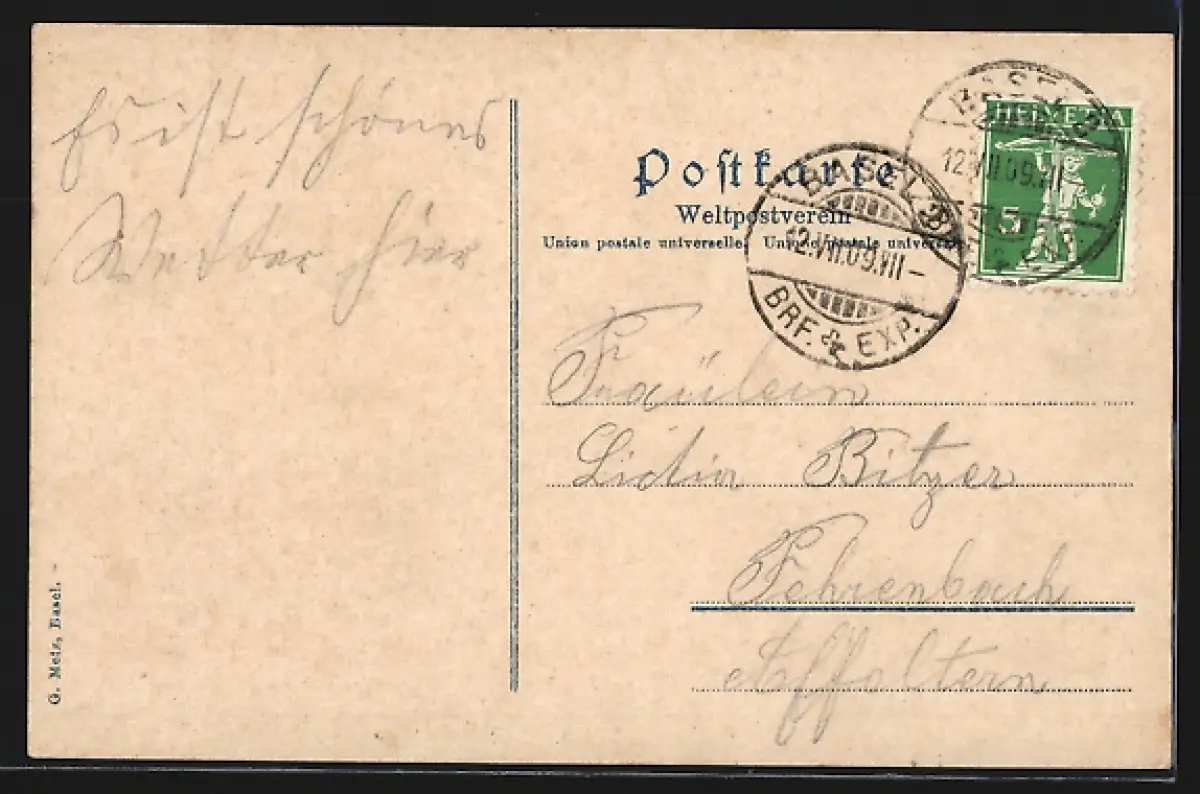 Es ist schönes
Wetter hier
Postkarte
Weltpostverein
Union postale universelle. Unione postale universale
HELVETIA
5
BASEL 3
12.VII.09.VII-
BRF. & EXP.
BASEL 3
12.VII.09.VII-
Fräulein
Lidia Bitzer
Fehrenbach
Affoltern
G. Metz, Basel.